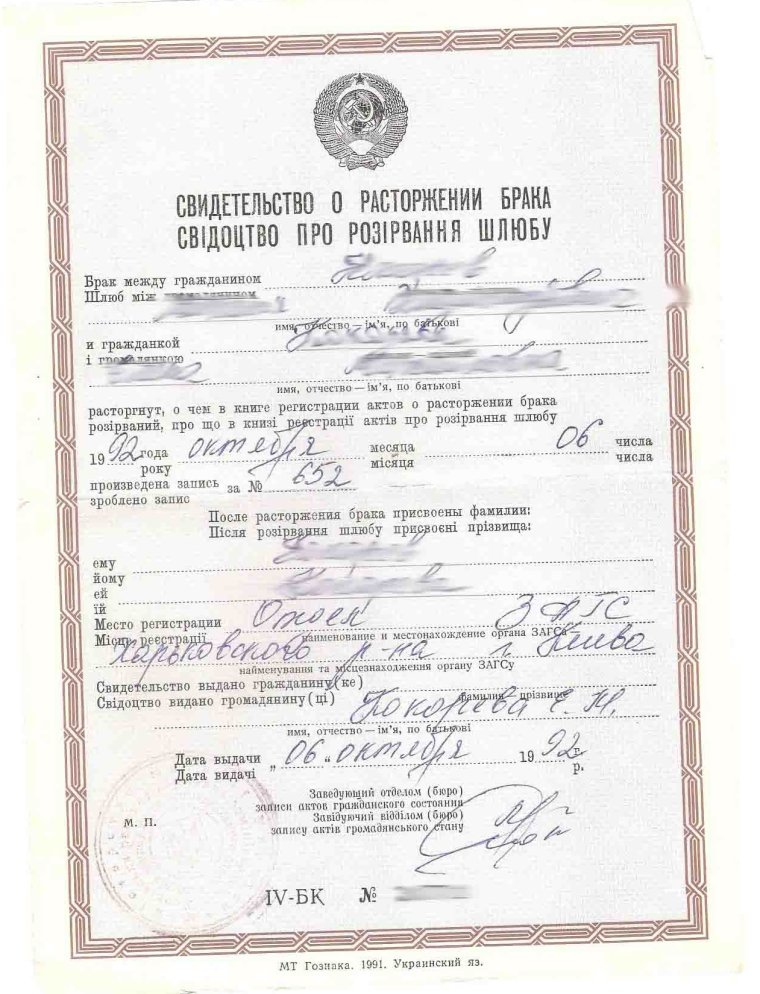 СВИДЕТЕЛЬСТВО О РАСТОРЖЕНИИ БРАКА
СВІДОЦТВО ПРО РОЗІРВАННЯ ШЛЮБУ
Брак между гражданином
Шлюб між громадянином
имя, отчество — ім'я, по батькові
и гражданкой
і громадянкою
имя, отчество — ім'я, по батькові
расторгнут, о чем в книге регистрации актов о расторжении брака
розірваний, про що в книзі реєстрації актів про розірвання шлюбу
1992 года октября месяца 06 числа
року місяця числа
произведена запись за № 652
зроблено запис
После расторжения брака присвоены фамилии:
Після розірвання шлюбу присвоєні прізвища:
ему
йому
ей
їй
Место регистрации Отдел ЗАГС
Місце реєстрації наименование и местонахождение органа ЗАГСа
Харьковского р-на г. Киева
найменування та місцезнаходження органу ЗАГСу
Свидетельство выдано гражданину(ке)
Свідоцтво видано громадянину(ці) фамилия — прізвище
Кокорева Е.
имя, отчество — ім'я, по батькові
Дата выдачи „06" октября 1992 г.
Дата видачі р.
Заведующий отделом (бюро)
записи актов гражданского состояния
Завідуючий відділом (бюро)
запису актів громадянського стану
М. П.
IV-БК №
МТ Гознака. 1991. Украинский яз.